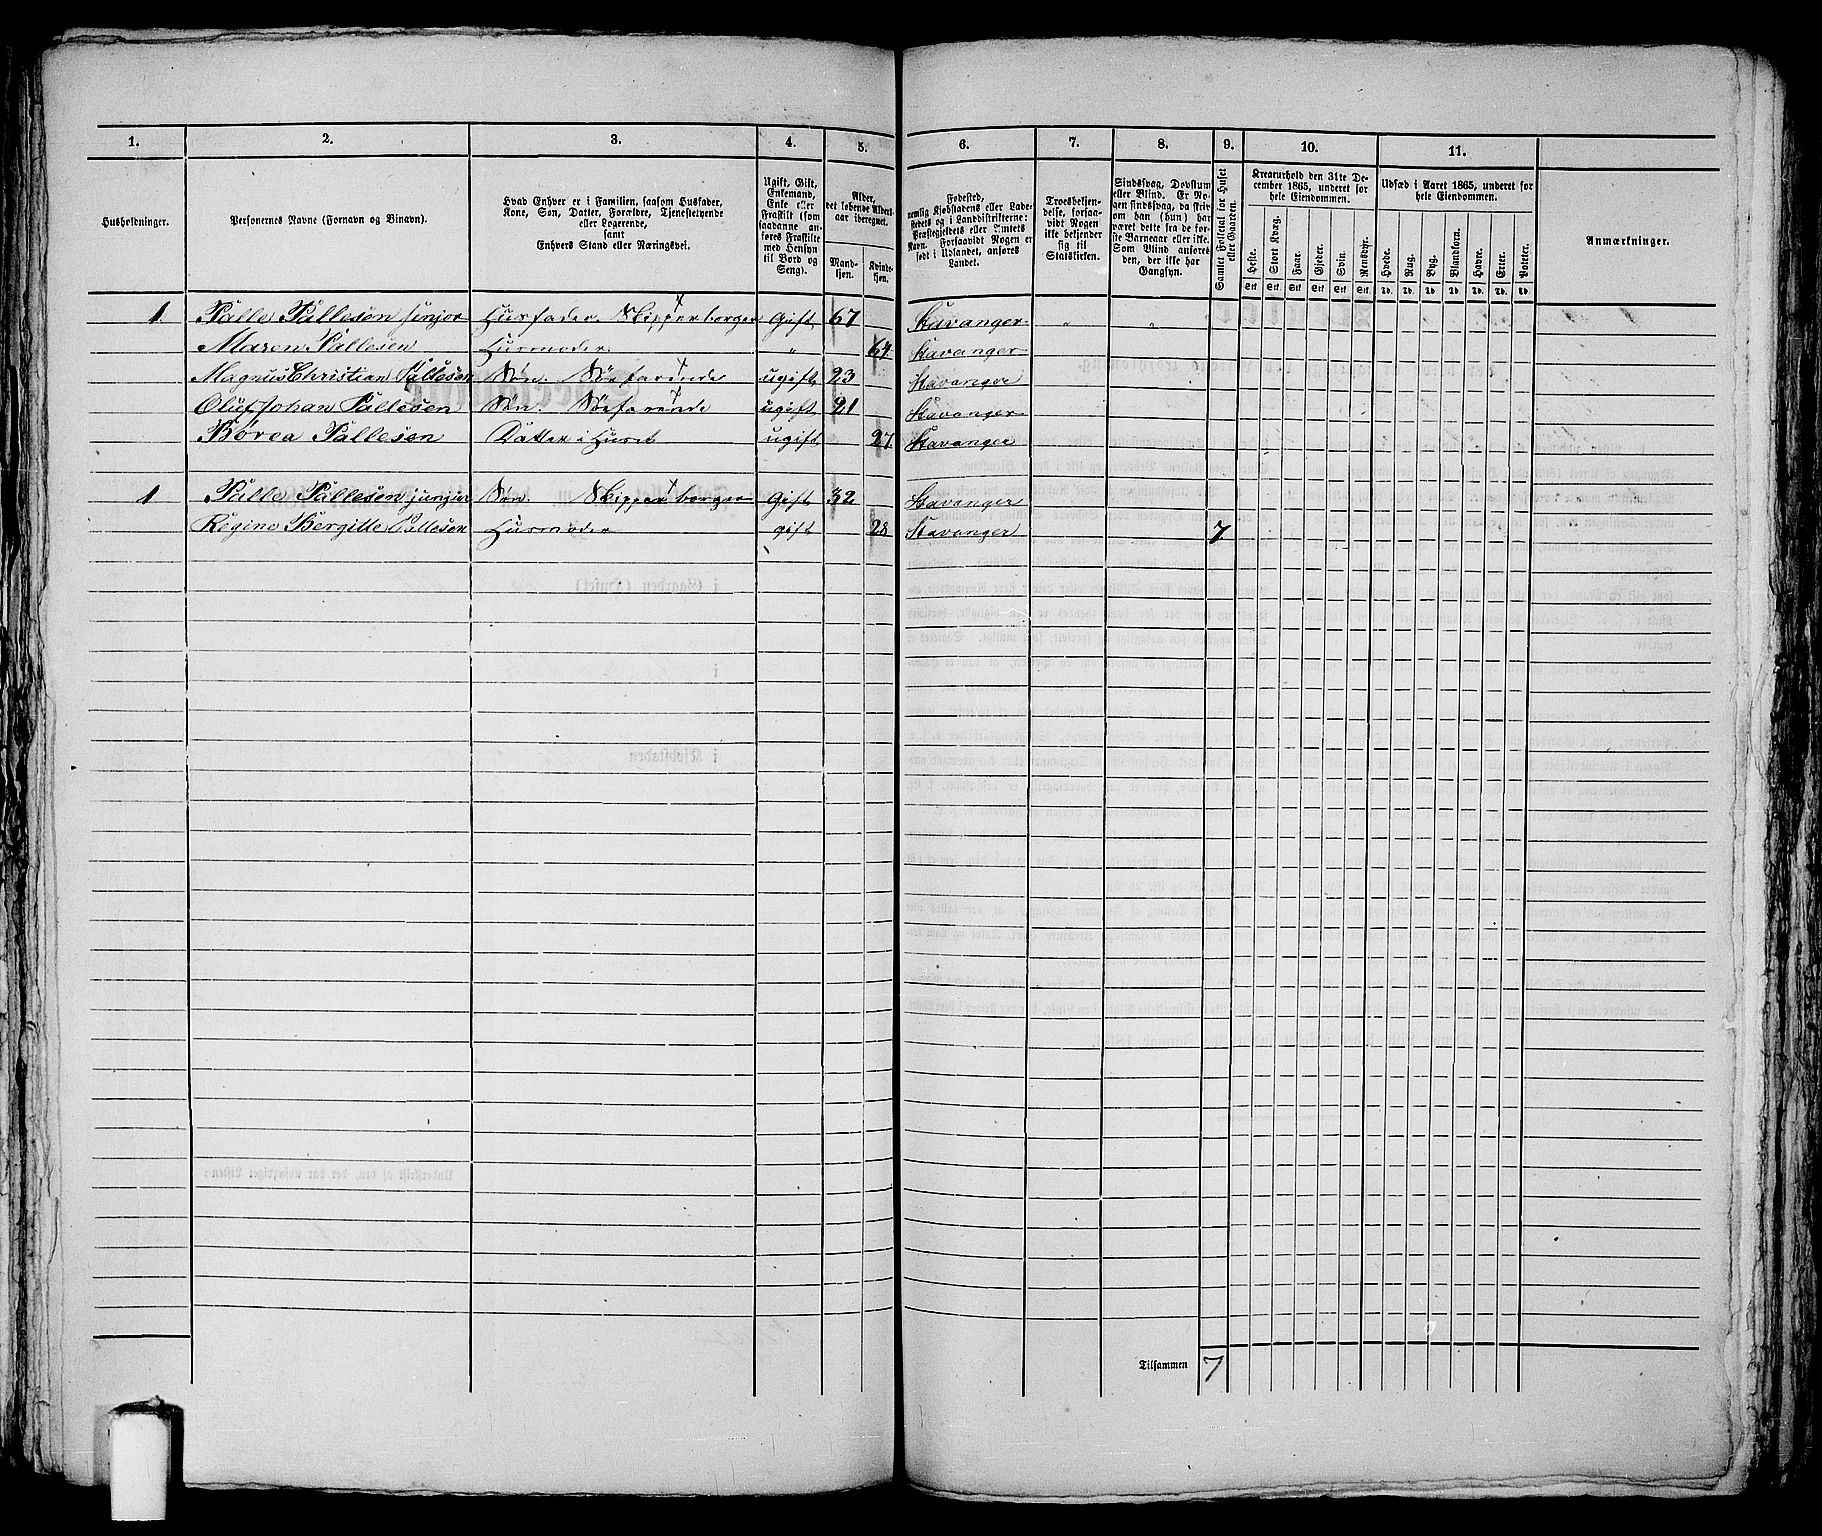 1. 2. 3. 4. 5. 6. 7. 8. 9. 10. 11.
Husholdninger.
Personernes Navne (Fornavn og Binavn).
Hvad Enhver er i Familien, saasom Husfader,
Kone, Søn, Datter, Forældre, Tjenestetyende
eller Logerende,
samt
Enhvers Stand eller Næringsvei.
Ugift, Gift,
Enkemand,
Enke eller
Fraskilt (som
saadanne an-
føres Fraskilte
med Hensyn
til Bord og
Seng).
Alder,
det løbende Alders-
aar iberegnet.
Mand-
kjøn.
Kvinde-
kjøn.
Fødested,
nemlig Kjøbstadens eller Lade-
stedets og i Landdistrikterne:
Præstegjeldets eller Amtets
Navn. Forsaavidt Nogen er
født i Udlandet, anføres
Landet.
Troesbekjen-
delse, forsaa-
vidt Nogen
ikke bekjender
sig til
Statskirken.
Sindssvag, Døvstum
eller Blind. Er No-
gen sindssvag, da skriv,
om han (hun) har
været dette fra de før-
ste Barneaar eller ikke.
Som Blind anføres
den, der ikke har
Gangsyn.
Samlet Folketal for Huset
eller Gaarden.
Kreaturhold den 31te De-
cember 1865, underet for
hele Eiendommen.
Heste. Stort Kvæg. Faar. Gjeder. Svin. Rensdyr.
Stk. Stk. Stk. Stk. Stk. Stk.
Udsæd i Aaret 1865, underet for
hele Eiendommen.
Hvede. Rug. Byg. Blandkorn. Havre. Erter. Poteter.
Td. Td. Td. Td. Td. Td. Td.
Anmærkninger.
1. Palle Pallesen senjor Husfader. Skipperborger Gift 67 Stavanger " "
Maren Pallesen Husmoder " 64 Stavanger
Magnus Christian Pallesen Søn. Søefarende ugift 23 Stavanger
Oluf Johan Pallesen Søn. Søefarende ugift 21 Stavanger
Børea Pallesen Datter i Huset ugift 27 Stavanger
1 Palle Pallesen junjor Søn. Skipperborger Gift 32 Stavanger
Regine Bergitte Pallesen Husmoder gift 28 Stavanger 7.
Tilsammen 7